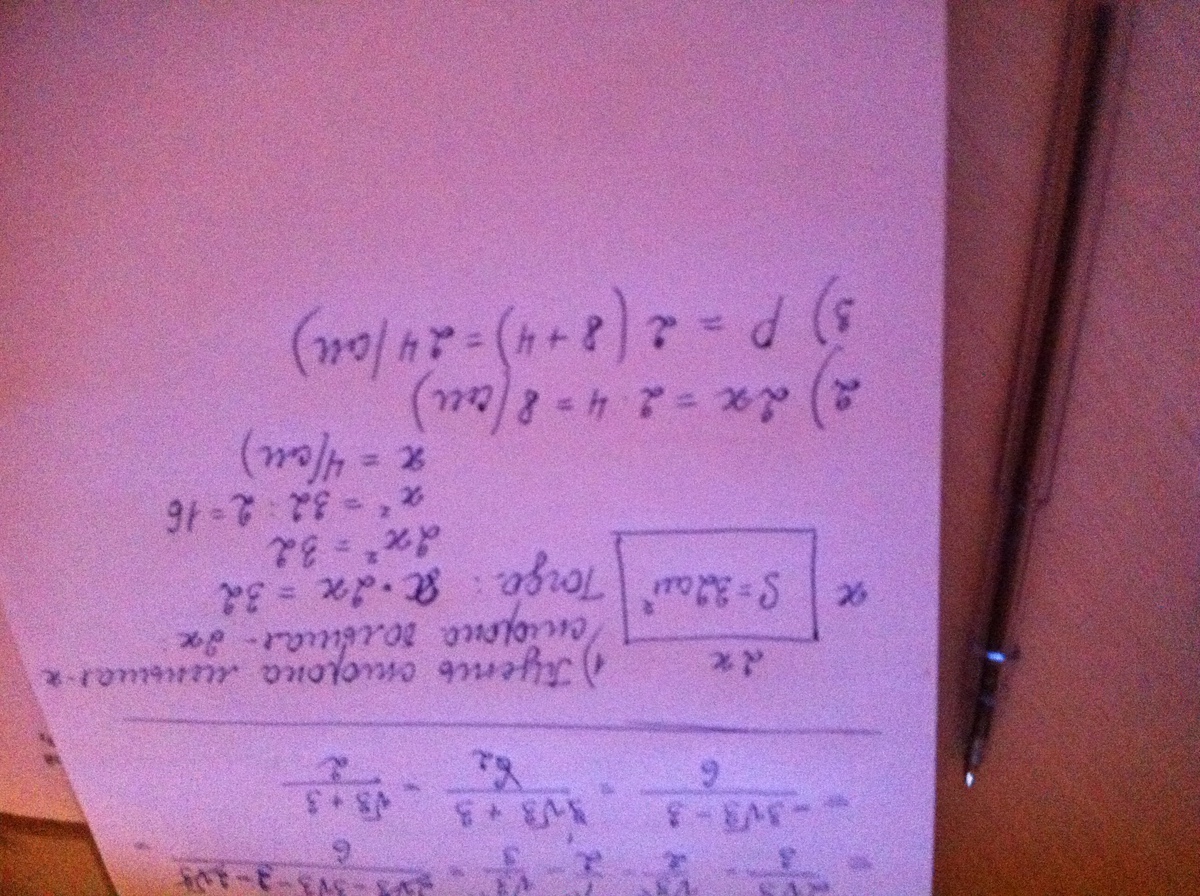 = (-3√3 - 3)/6 = (3√3 + 3)/6 2 = (√3 + 3)/2
2x
x
S = 32 см²
1) Пусть сторона меньшая - x
сторона большая - 2x.
Тогда: x · 2x = 32
2x² = 32
x² = 32 : 2 = 16
x = 4 (см)
2) 2x = 2 · 4 = 8 (см)
3) P = 2 (8 + 4) = 24 (см)